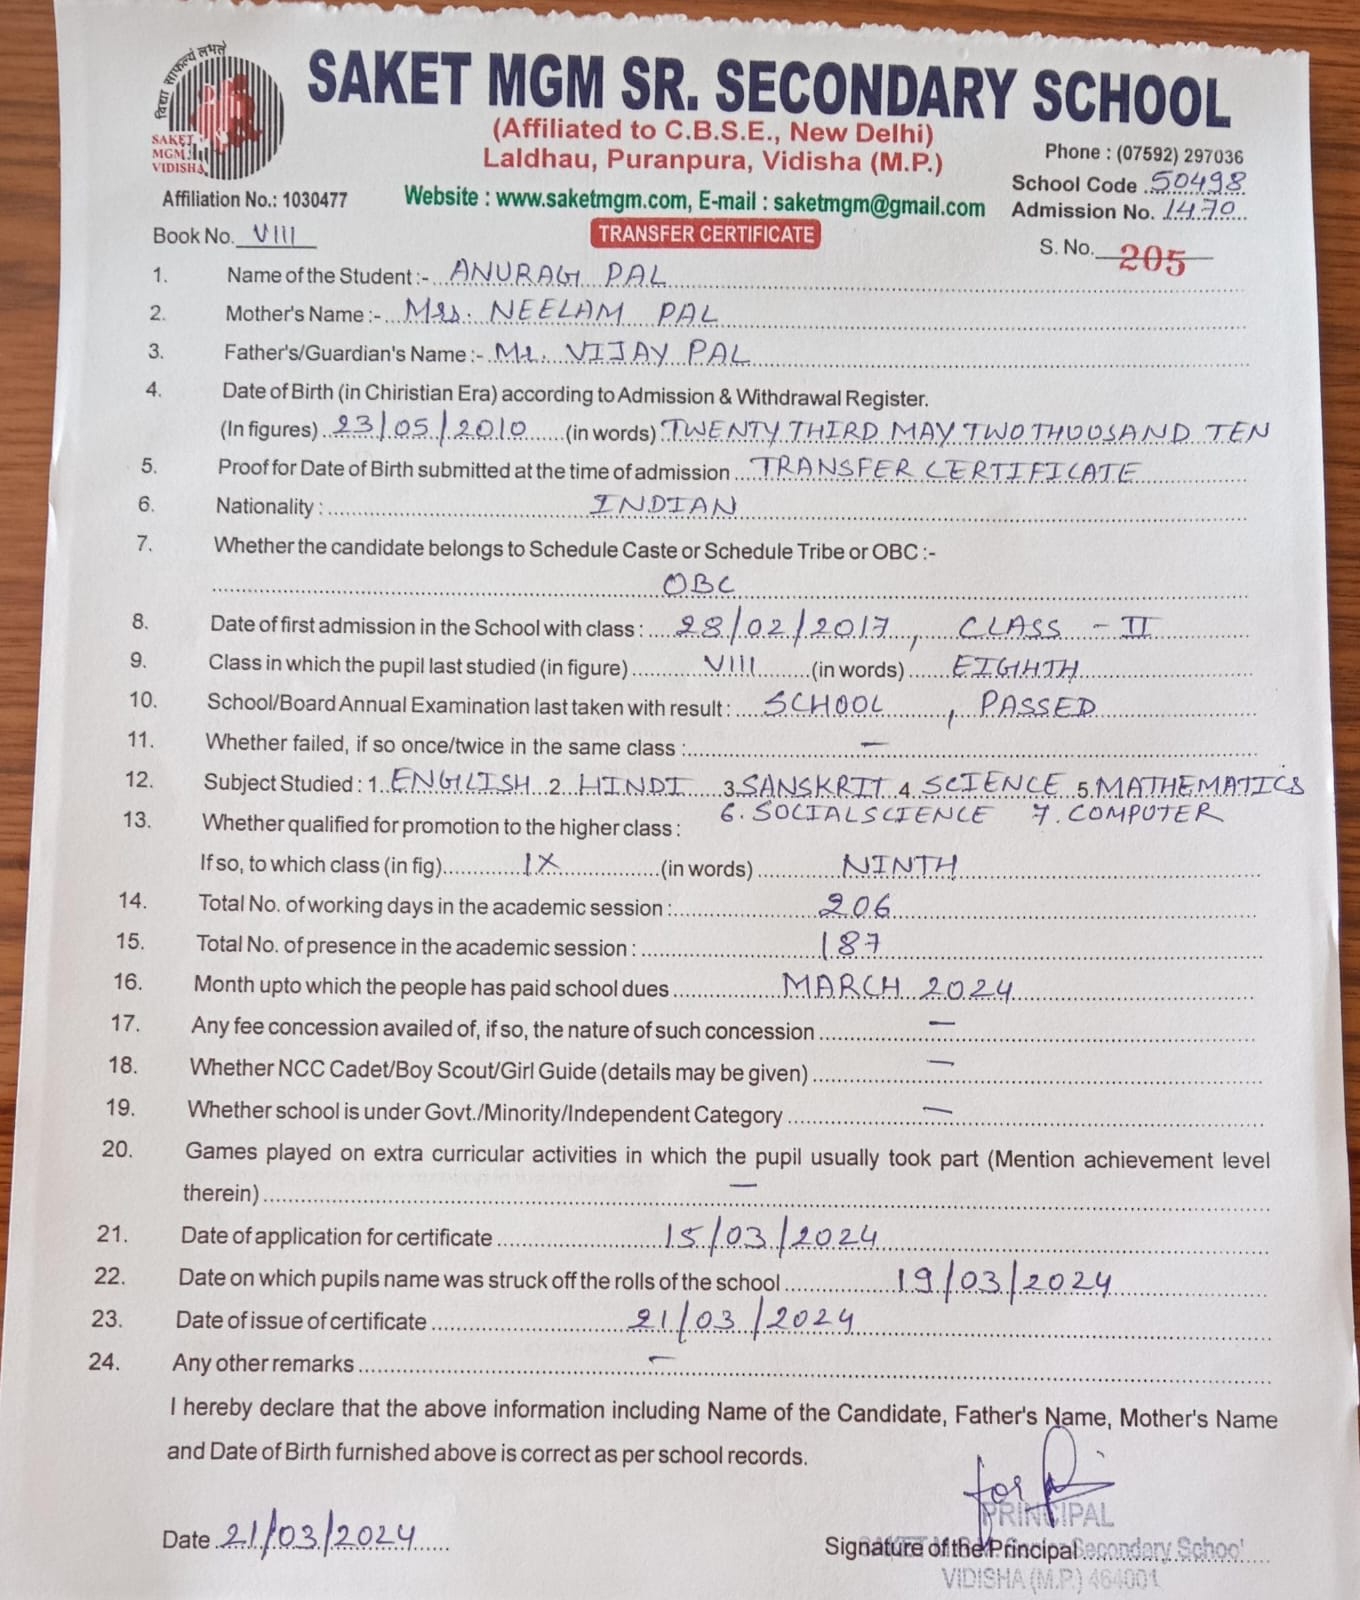 विद्या साफल्यं लभते
SAKET
MGM
VIDISHA
SAKET MGM SR. SECONDARY SCHOOL
(Affiliated to C.B.S.E., New Delhi)
Laldhau, Puranpura, Vidisha (M.P.)
Phone : (07592) 297036
School Code 50498
Affiliation No.: 1030477
Website : www.saketmgm.com, E-mail : saketmgm@gmail.com
Admission No. 1470
Book No. VIII
TRANSFER CERTIFICATE
S. No. 205
1. Name of the Student :- ANURAG PAL
2. Mother's Name :- Mrs. NEELAM PAL
3. Father's/Guardian's Name :- Mr. VIJAY PAL
4. Date of Birth (in Chiristian Era) according to Admission & Withdrawal Register.
(In figures) 23/05/2010 (in words) TWENTY THIRD MAY TWO THOUSAND TEN
5. Proof for Date of Birth submitted at the time of admission TRANSFER CERTIFICATE
6. Nationality : INDIAN
7. Whether the candidate belongs to Schedule Caste or Schedule Tribe or OBC :-
OBC
8. Date of first admission in the School with class : 28/02/2017, CLASS - II
9. Class in which the pupil last studied (in figure) VIII (in words) EIGHTH
10. School/Board Annual Examination last taken with result : SCHOOL, PASSED
11. Whether failed, if so once/twice in the same class : —
12. Subject Studied : 1. ENGLISH 2. HINDI 3. SANSKRIT 4. SCIENCE 5. MATHEMATICS
6. SOCIAL SCIENCE 7. COMPUTER
13. Whether qualified for promotion to the higher class :
If so, to which class (in fig) IX (in words) NINTH
14. Total No. of working days in the academic session : 206
15. Total No. of presence in the academic session : 187
16. Month upto which the people has paid school dues MARCH 2024
17. Any fee concession availed of, if so, the nature of such concession —
18. Whether NCC Cadet/Boy Scout/Girl Guide (details may be given) —
19. Whether school is under Govt./Minority/Independent Category —
20. Games played on extra curricular activities in which the pupil usually took part (Mention achievement level
therein) —
21. Date of application for certificate 15/03/2024
22. Date on which pupils name was struck off the rolls of the school 19/03/2024
23. Date of issue of certificate 21/03/2024
24. Any other remarks —
I hereby declare that the above information including Name of the Candidate, Father's Name, Mother's Name
and Date of Birth furnished above is correct as per school records.
for
PRINCIPAL
Date 21/03/2024
Signature of the Principal
Secondary School
VIDISHA (M.P.) 464001